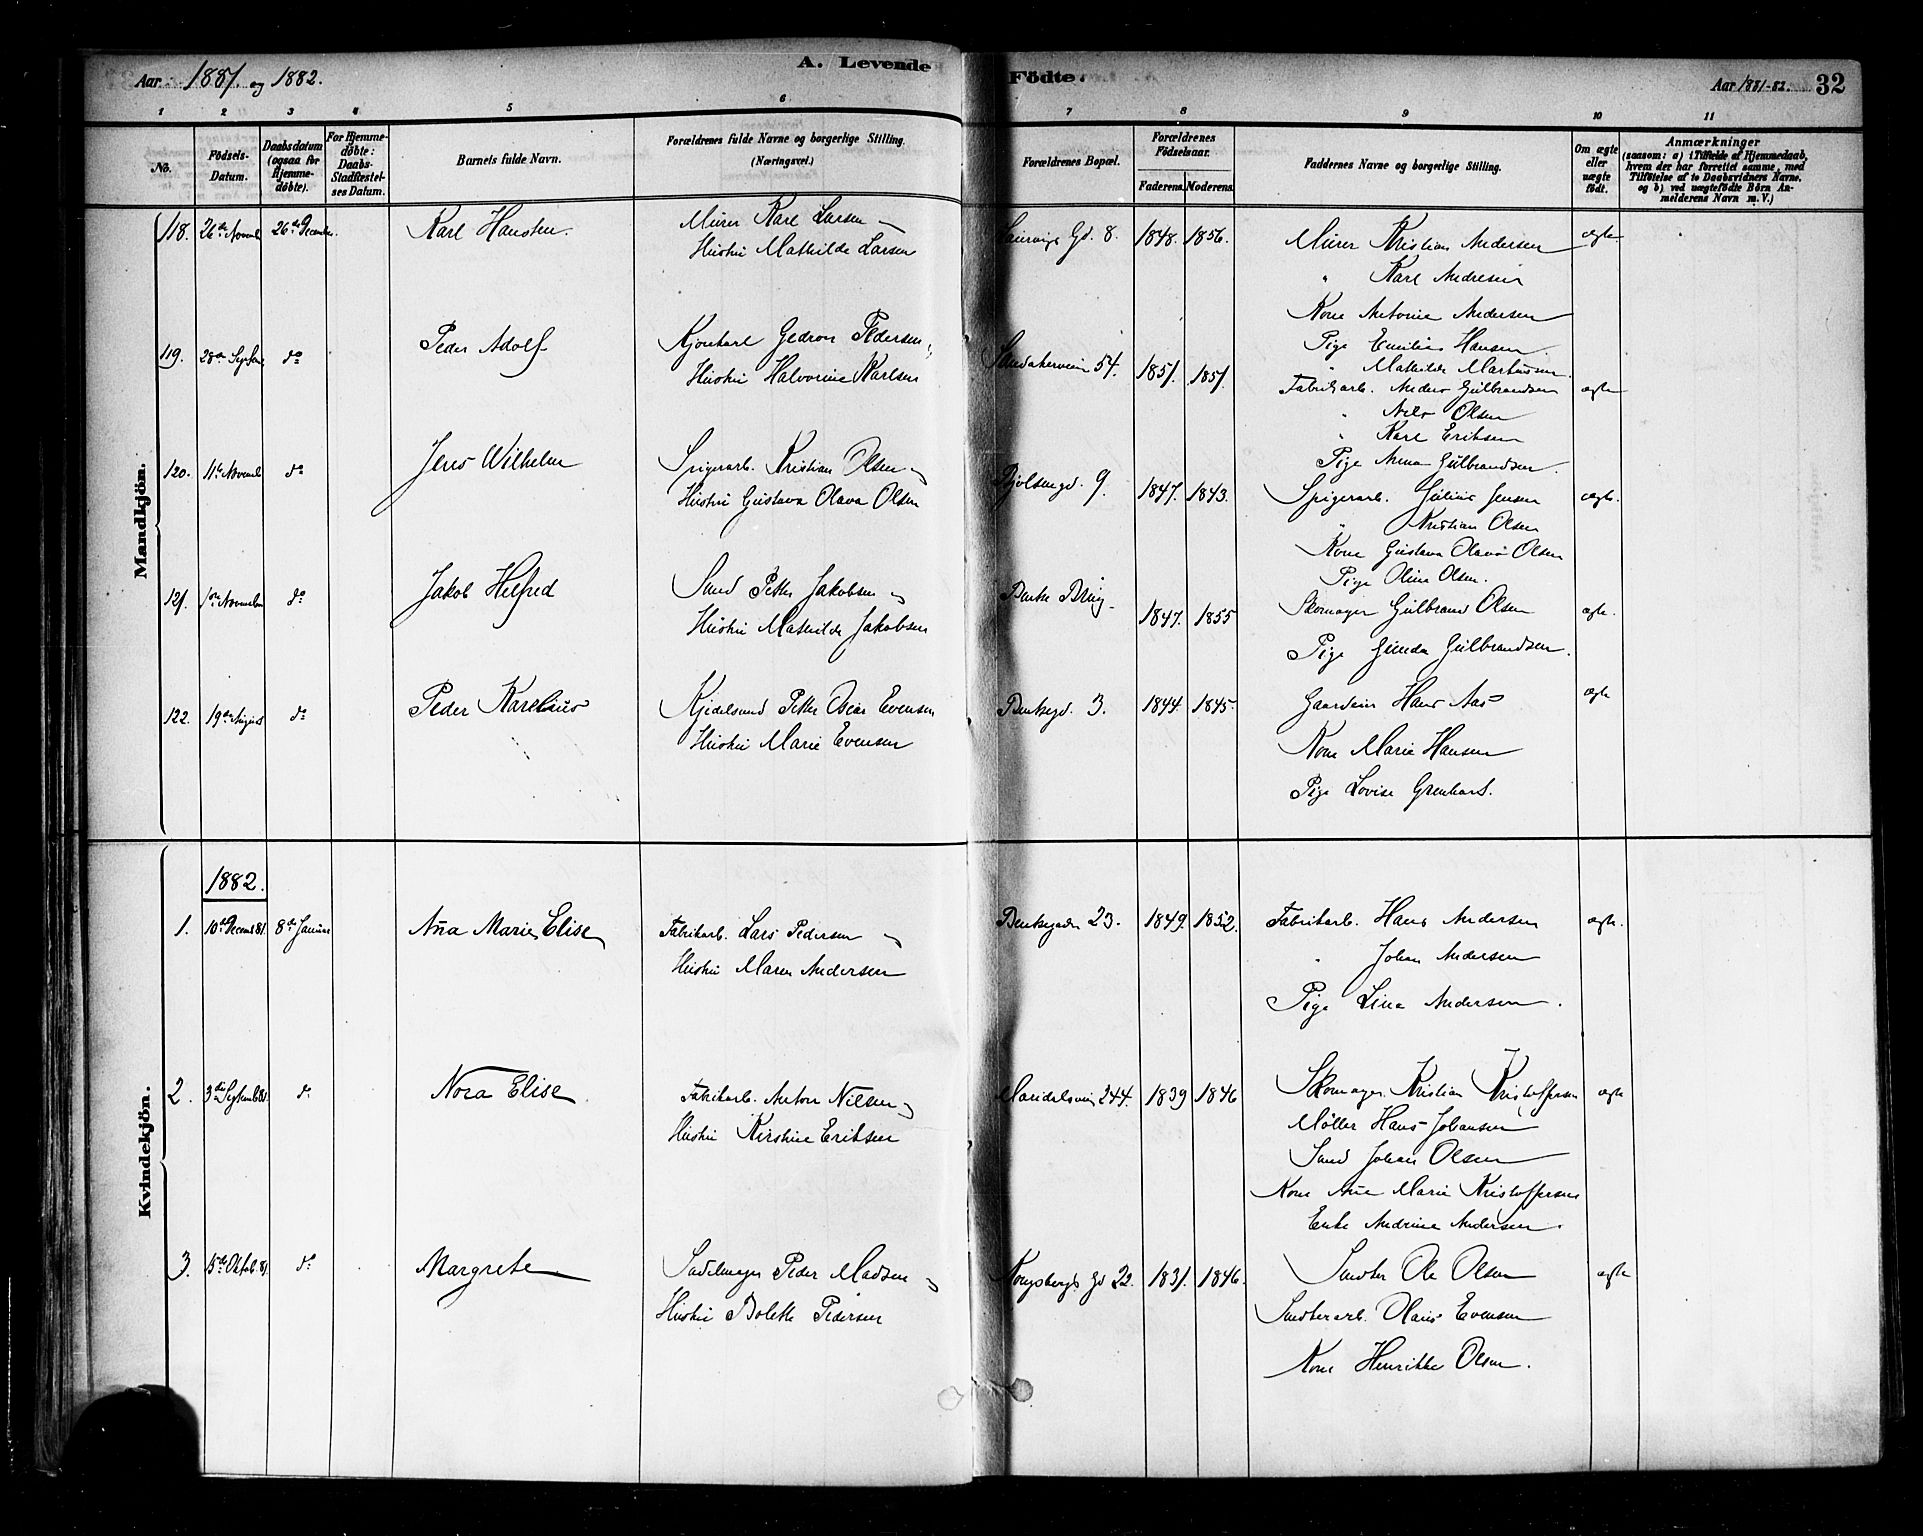 Aar 1881. og 1882.
A. Levende Födte.
Aar 1881-82. 32
1 2 3 4 5 6 7 8 9 10 11
No.
Födsels-Datum.
Daabsdatum (ogsaa for Hjemme-döbte).
For Hjemme-döbte: Daabs-Stadfæstel-ses Datum.
Barnets fulde Navn.
Forældrenes fulde Navne og borgerlige Stilling.
(Næringsvei.)
Forældrenes Bopæl.
Forældrenes Födselsaar.
Faderens. Moderens.
Faddernes Navne og borgerlige Stilling.
Om ægte eller uægte födt.
Anmærkninger
(saasom: a) i Tilfælde af Hjemmedaab,
hvem der har forrettet samme, med
Tilföielse af to Daabsvidners Navne,
og b) ved uægtefödte Börn An-
melderens Navn m. V.)
Mandkjön.
118. 26de Novemb 26de December Karl Hansten. Murer Karl Larsen og Gd. 8. 1848. 1856. Murer Kristian Andersen ægte
Hustru Mathilde Larsen
" Karl Andresen
Kone Antonie Andersen
119. 28de Septem do Peder Adolf Gedron Pedersen Sandakerveien 54. 1851. 1851. Pige Emilie Hansen
Hustru Halvorine Karlsen
" Mathilde Martinsen
Fabrikarb. Anders Gulbrandsen ægte
" Nils Olsen
" Karl Eriksen
120. 11te Novemb do Jens Wilhelm Spigerarb. Kristian Olsen og Bjølsengd. 9. 1847. 1843. Pige Anna Gulbrandsen.
Hustru Gustava Olava Olsen
Spigerarb. Julius Jensen ægte.
" Kristian Olsen
Kone Gustava Olava Olsen
Pige Olina Olsen.
121. 1ste November do Jakob Helfred Smed Petter Jakobsen og 1847. 1855 Skomager Gulbrand Olsen ægte.
Hustru Mathilde Jakobsen
Pige Gunda Gulbrandsen.
122. 19de August do Peder Karelius Kjedelsmed Petter Oscar Evensen Bentsegd. 3. 1844. 1845. Gaardeier Hans Aas ægte
Hustru Marie Evensen
Kone Marie Hansen
Pige Lovise
Kvindekjön.
1882.
1. 10de Decemb 81. 8de Januar Anna Marie Elise Fabrikarb. Lars Pedersen og Bentsegaden 23. 1849. 1852. Fabrikarb. Hans Andersen ægte.
Hustru Maren Andersen
" Johan Andersen
Pige Lina Andersen.
2. 3die Septemb 81. do Nora Elise Fabrikarb. Anton Nilsen og Maridalsvei 244. 1839 1846 Skomager Kristian Kristoffersen ægte
Hustru Kirstine Eriksen
Møller Hans Johansen
Smed Johan Olsen
Kone Anne Marie Kristoffersen
Enke Andrine Andersen.
3. 15de Oktob. 81. do Margrete Sadelmager Peder Madsen og Kongsbergs Gd 22. 1831. 1846. Snedker Ole Olsen ægte
Hustru Bolette Pedersen
Snedkerarb. Olaus Evensen
Kone Henrikke Olsen.